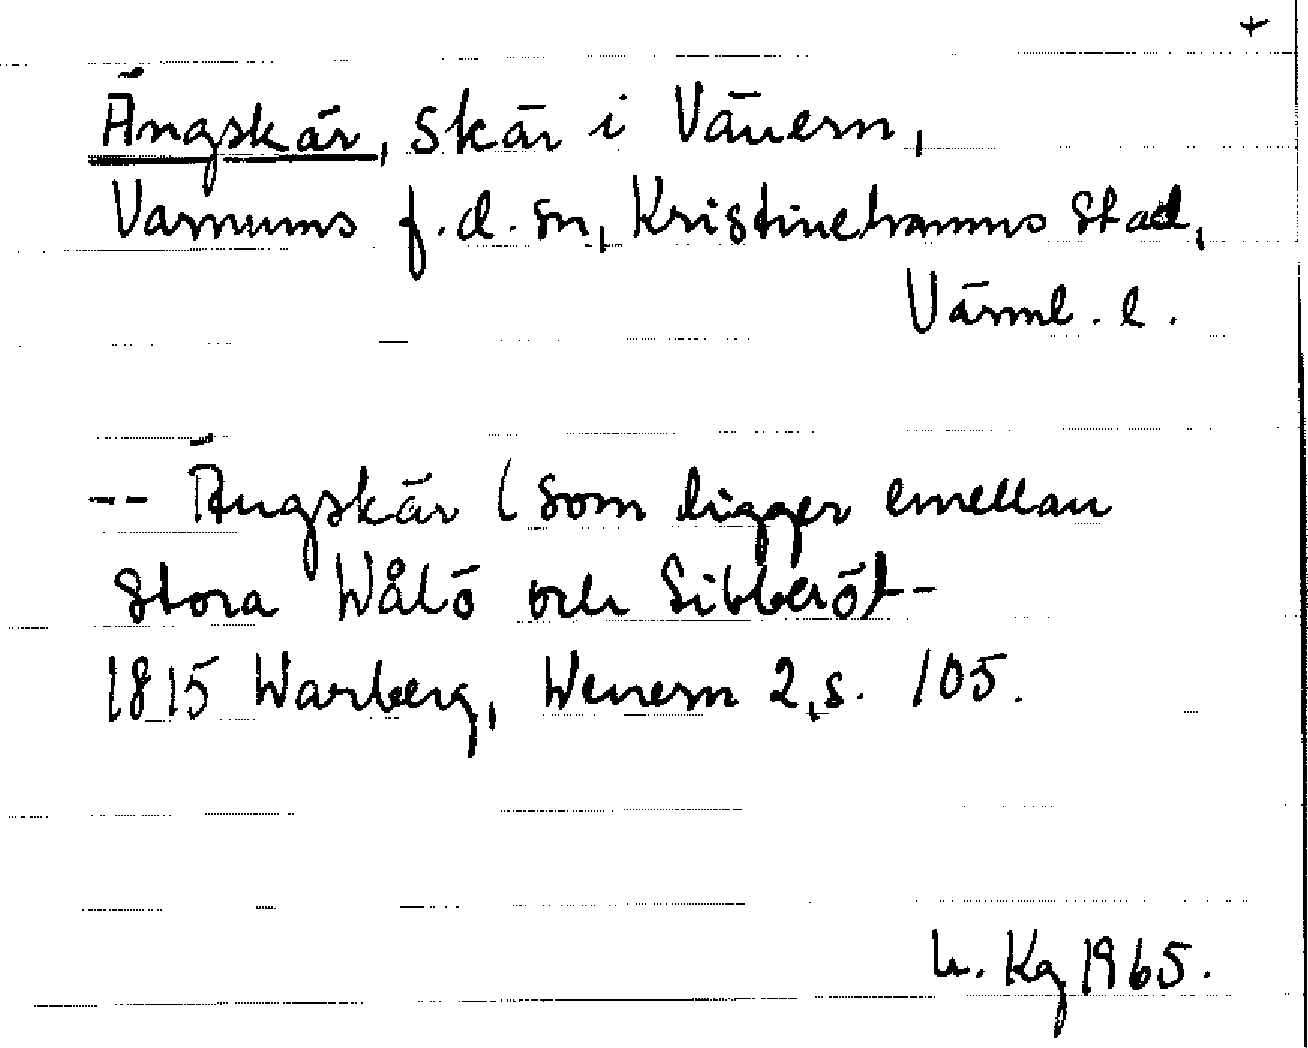 +
Ängskär, skär i Vänern,
Varnums f.d. sn, Kristinehamns stad,
Värml. l.
-- Ängskär (som ligger emellan
Stora Wålö och Sibberöt-
1815 Warberg, Wenern 2, s. 105.
Kg 1965.